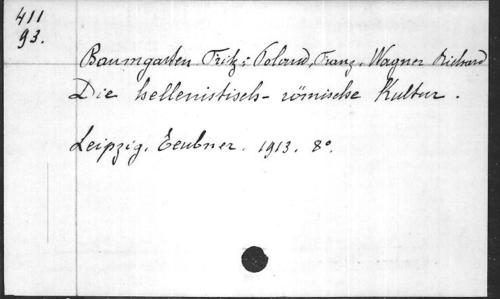 411
93.
Baumgarten Fritz; Poland, Franz, Wagner Richard
Die hellenistisch-römische Kultur.
Leipzig, Teubner. 1913. 8°.